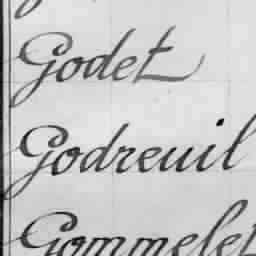 Godet
Godreuil
Gommelet